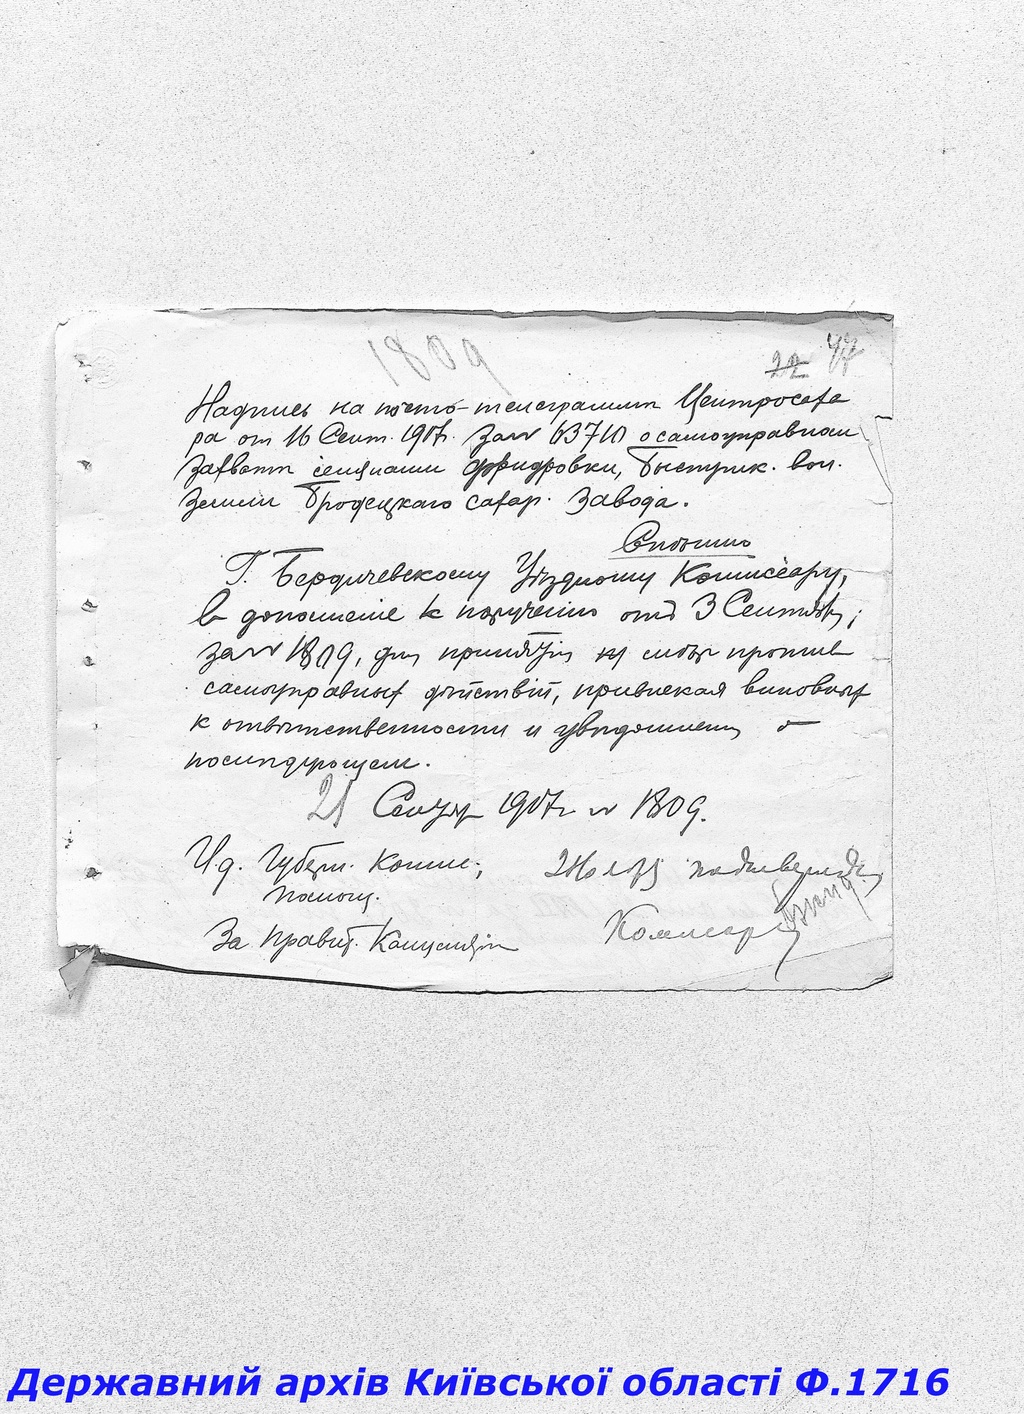 1809
22 47
Надпись на почто-телеграмме Центросаха
ра от 16 Сент. 1917г. за № 63710 о самоуправном
захвате селянами Фридровки, Быстрик. вол.
земли Бродецкаго сахар. завода.
Спешно
Г. Бердичевскому Уездному Комиссару,
в дополнение к поручению от 3 Сентября,
за № 1809, для принятия мер против
самоуправных действий, привлекая виновных
к ответственности и уведомления о
последующем.
21 Сентяб 1917г № 1809.
И.д. Губерн. Комис.
Помощ.
За Правит. Канцелярии
Комиссар
Державний архів Київської області Ф.1716